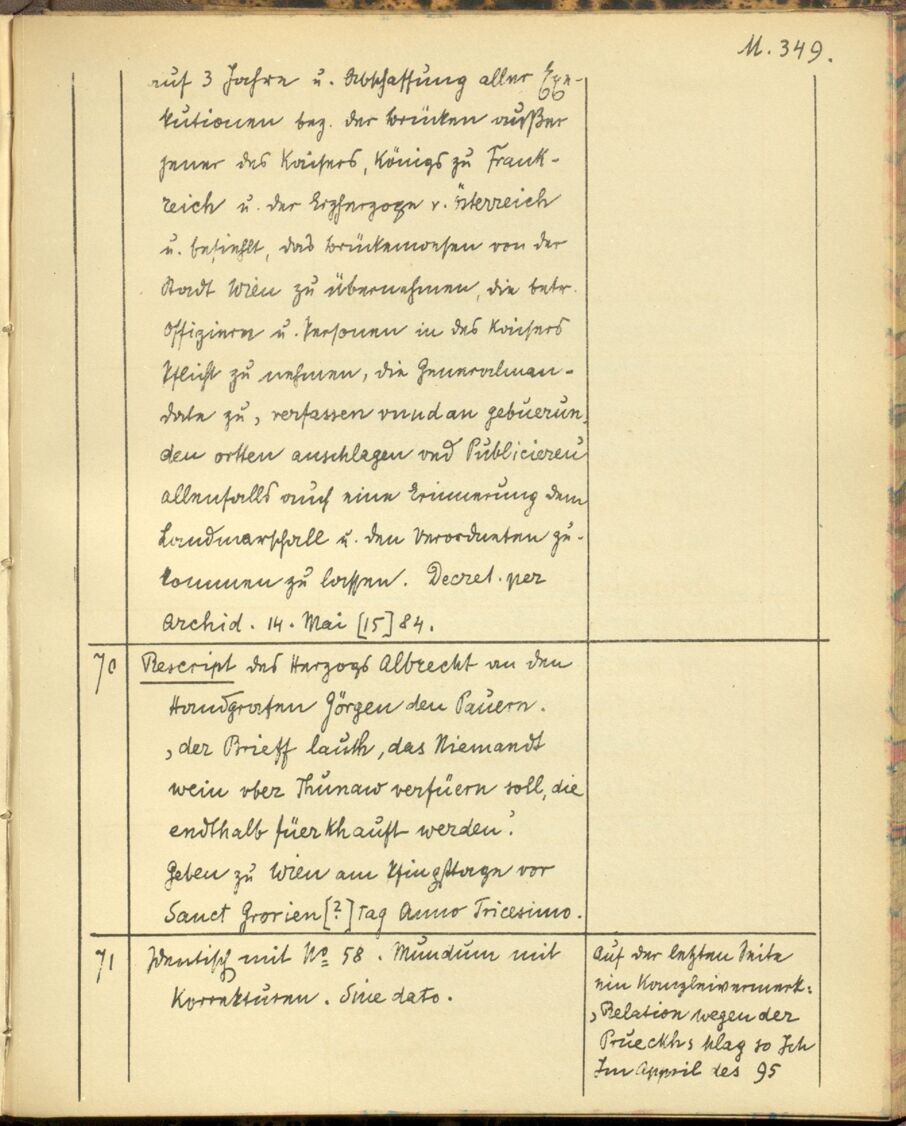 M. 349.
auf 3 Jahre u. Abschaffung aller Exe-
kutionen bez. der Brücken außer
jener des Kaisers, Königs zu Frank-
reich u. der Erzherzoge v. Österreich
u. befiehlt, das Brückenwesen von der
Stadt Wien zu übernehmen, die betr.
Offiziere u. Personen in des Kaisers
Pflicht zu nehmen, die Generalman-
date zu „verfassen vnnd an gebuerun-
den ortten anschlagen vnd Publicieren“
allenfalls auch eine Erinnerung dem
Landmarschall u. den Verordneten zu-
kommen zu lassen. Decret. per
Archid. 14. Mai [15]84.
70 Rescript des Herzogs Albrecht an den
Handgrafen Jörgen den Pauern.
„der Brieff lauth, das Niemandt
wein vber Thunaw verfüern soll, die
endthalb füerkhauft werden“.
Geben zu Wien am Pfingsttage vor
Sanct Grorien [?] tag Anno Tricesimo.
71 Identisch mit No 58. Mundum mit
Korrekturen. Sine dato.
Auf der letzten Seite
ein Kanzleivermerk:
„Relation wegen der
Prueckhschlag so Ich
Im Appril des 95